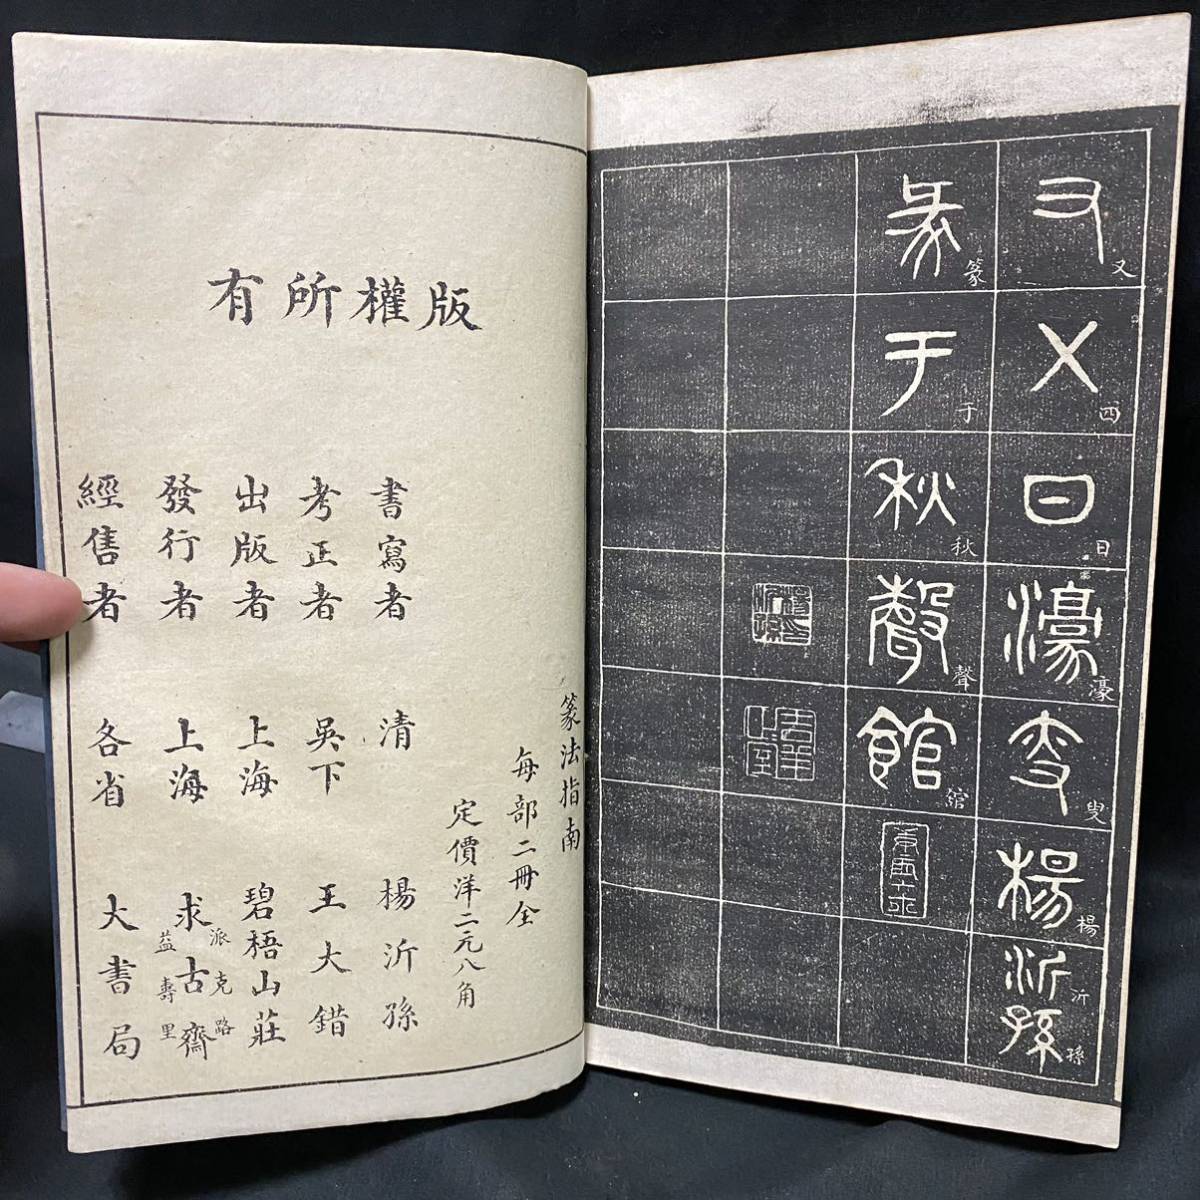 又四日濠叟楊沂孫
篆于秋聲館
又
四
日
濠
叟
楊
沂
孫
篆
于
秋
聲
館
版權所有
篆法指南
每部二冊全
定價洋二元八角
書寫者 清 楊沂孫
考正者 吳下 王大錯
出版者 上海 碧梧山莊
發行者 上海 求古齋
派克路
益壽里
經售者 各省 大書局